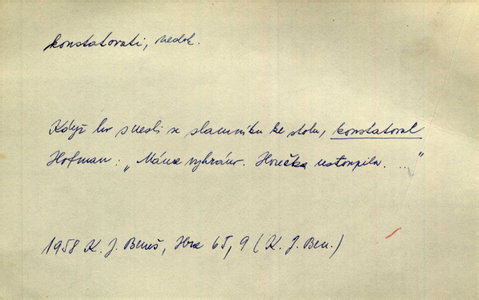 konstatovati, nedok.
Když ho snesli se slamníku ke stolu, konstatoval
Hofman: „Máme vyhráno. Horečka ustoupila. ..."
1958 K. J. Beneš, Hra 65, 9 (K. J. Ben.)